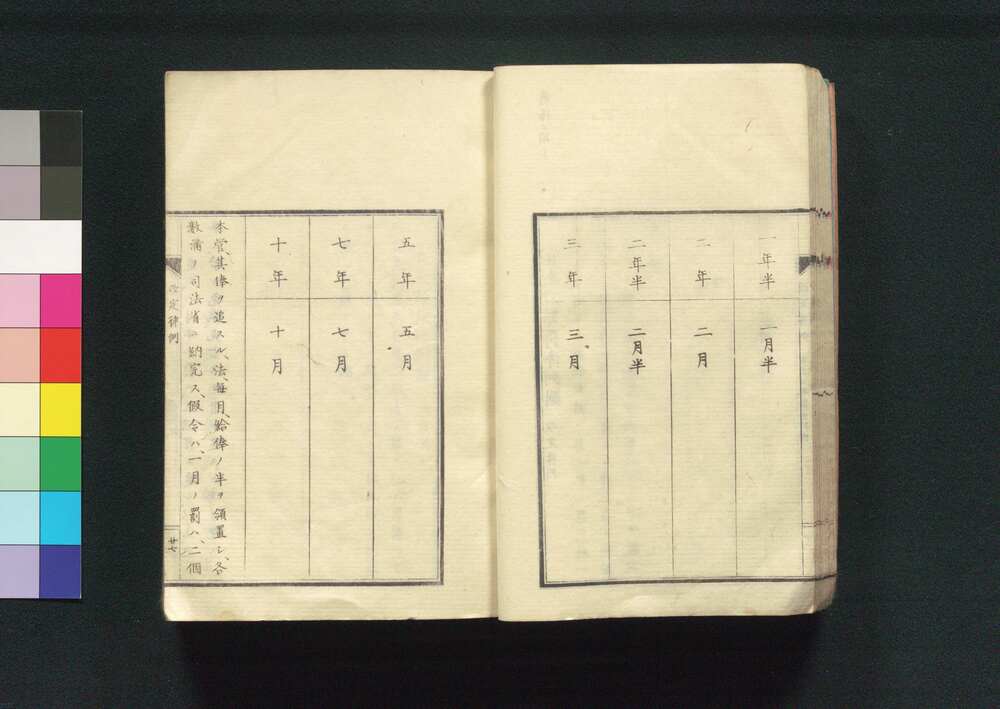 一年半 一月半
二年 二月
二年半 二月半
三年 三月
五年 五月
七年 七月
十年 十月
本管、其俸ヲ追スル、法、毎月、給俸ノ半ヲ領置シ、各
數滿ヲ司法省ニ納完ス、假令ハ、一月ノ罰ハ、二個
改定律例
廿七